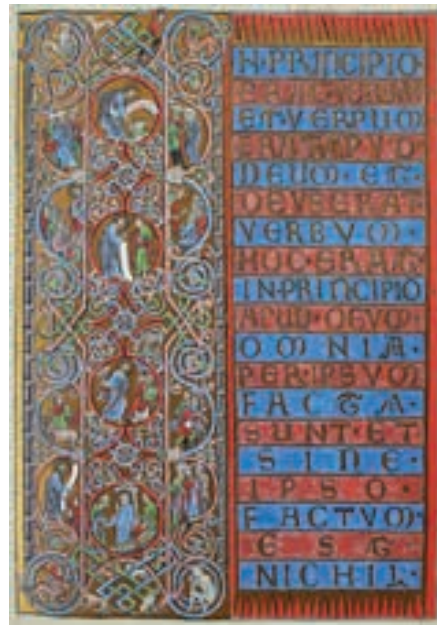 N·PRINCIPIO·
ERAT·VERBUM
ET VERBUM
ERAT APUD
DEUM·ET·
DEUS ERAT
VERBVM·
HOC·ERAT
IN·PRINCIPIO
APUD·DEUM·
OMNIA·
PER·IPSVM
FACTA·
SUNT·ET
SINE·
IPSO·
FACTVM·
EST
NICHIL·